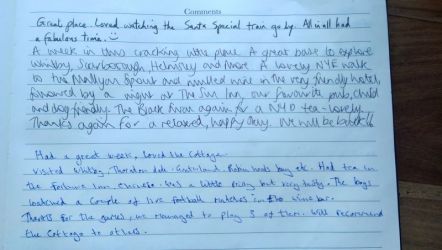 Comments
Great place. Loved watching the Santa Special train go by. All in all had
a fabulous time.
A week in this cracking little place. A great base to explore
Whitby, Scarborough, Helmsley and more. A lovely NYE walk
to the Mallyan Spout and mulled wine in the very friendly hotel,
followed by a night at The Inn, our favourite pub, child
and dog friendly. The again for a NYD tea - lovely.
Thanks again for a relaxed, happy stay. We will be back!!
Had a great week, loved the cottage.
visited Whitby, Thornton dale, Goathland, Robin hoods bay etc. Had tea in
the Inn, was a little pricey but very tasty. The boys
watched a couple of live football matches in the bar.
Thanks for the games, we managed to play 3 of them. Will recommend
the cottage to others.